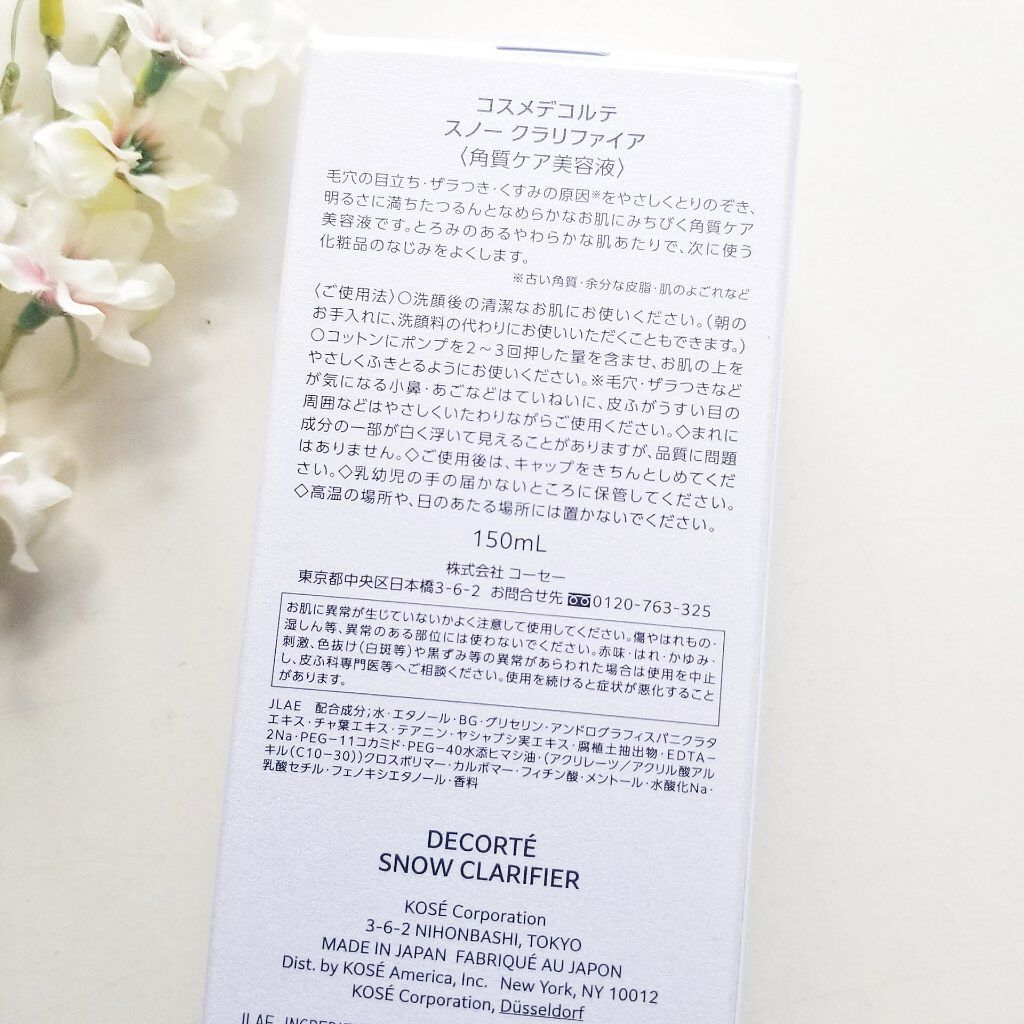 コスメデコルテ
スノー クラリファイア
〈角質ケア美容液〉
毛穴の目立ち・ザラつき・くすみの原因※をやさしくとりのぞき、
明るさに満ちたつるんとなめらかなお肌にみちびく角質ケア
美容液です。とろみのあるやわらかな肌あたりで、次に使う
化粧品のなじみをよくします。
※古い角質・余分な皮脂・肌のよごれなど
〈ご使用法〉○洗顔後の清潔なお肌にお使いください。(朝の
お手入れに、洗顔料の代わりにお使いいただくこともできます。)
○コットンにポンプを2~3回押した量を含ませ、お肌の上を
やさしくふきとるようにお使いください。※毛穴・ザラつきなど
が気になる小鼻・あごなどはていねいに、皮ふがうすい目の
周囲などはやさしくいたわりながらご使用ください。◇まれに
成分の一部が白く浮いて見えることがありますが、品質に問題
はありません。◇ご使用後は、キャップをきちんとしめてくだ
さい。◇乳幼児の手の届かないところに保管してください。
◇高温の場所や、日のあたる場所には置かないでください。
150mL
株式会社 コーセー
東京都中央区日本橋3-6-2 お問合せ先 0120-763-325
お肌に異常が生じていないかよく注意して使用してください。傷やはれもの・
湿しん等、異常のある部位には使わないでください。赤味・はれ・かゆみ・
刺激、色抜け(白斑等)や黒ずみ等の異常があらわれた場合は使用を中止
し、皮ふ科専門医等へご相談ください。使用を続けると症状が悪化すること
があります。
JLAE 配合成分;水・エタノール・BG・グリセリン・アンドログラフィスパニクラタ
エキス・チャ葉エキス・テアニン・ヤシャブシ実エキス・腐植土抽出物・EDTA-
2Na・PEG-11コカミド・PEG-40水添ヒマシ油・(アクリレーツ/アクリル酸アル
キル(C10-30))クロスポリマー・カルボマー・フィチン酸・メントール・水酸化Na・
乳酸セチル・フェノキシエタノール・香料
DECORTÉ
SNOW CLARIFIER
KOSÉ Corporation
3-6-2 NIHONBASHI, TOKYO
MADE IN JAPAN FABRIQUÉ AU JAPON
Dist. by KOSÉ America, Inc. New York, NY 10012
KOSÉ Corporation, Düsseldorf